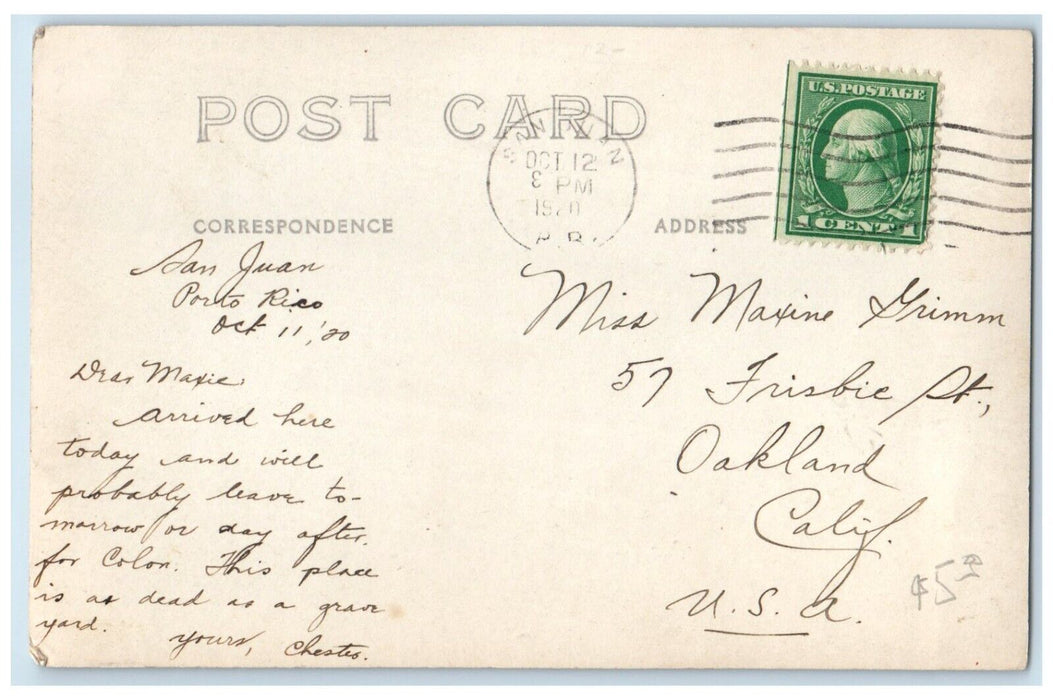 POST CARD
SAN JUAN
OCT 12
8 PM
1920
P.R.
U.S. POSTAGE
1 CENT 1
CORRESPONDENCE
ADDRESS
San Juan
Porto Rico
Oct 11, '20
Dear Maxie:
Arrived here
today and will
probably leave to-
morrow or day after.
for Colon. This place
is as dead as a grave
yard.
Yours, Chester.
Miss Maxine Grimm
57 Frisbie St.,
Oakland
Calif.
U. S. A.
$5